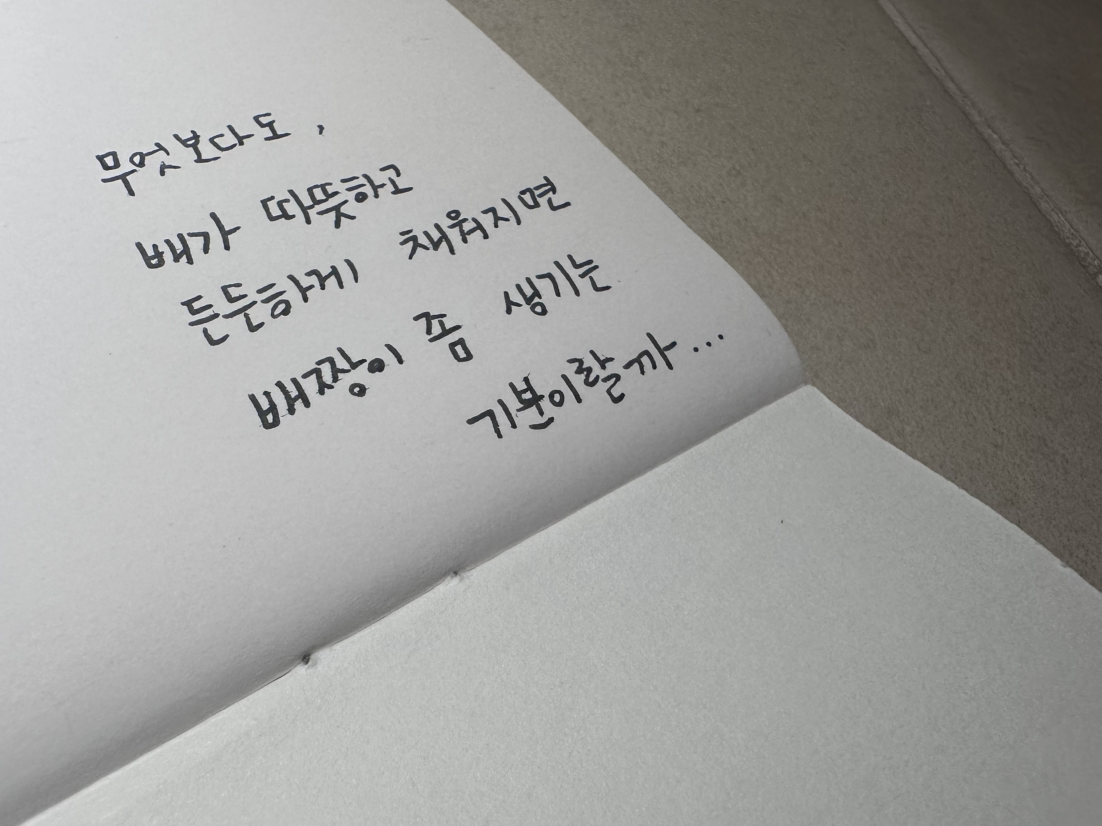 무엇보다도,
배가 따뜻하고
든든하게 채워지면
배짱이 좀 생기는
기분이랄까...